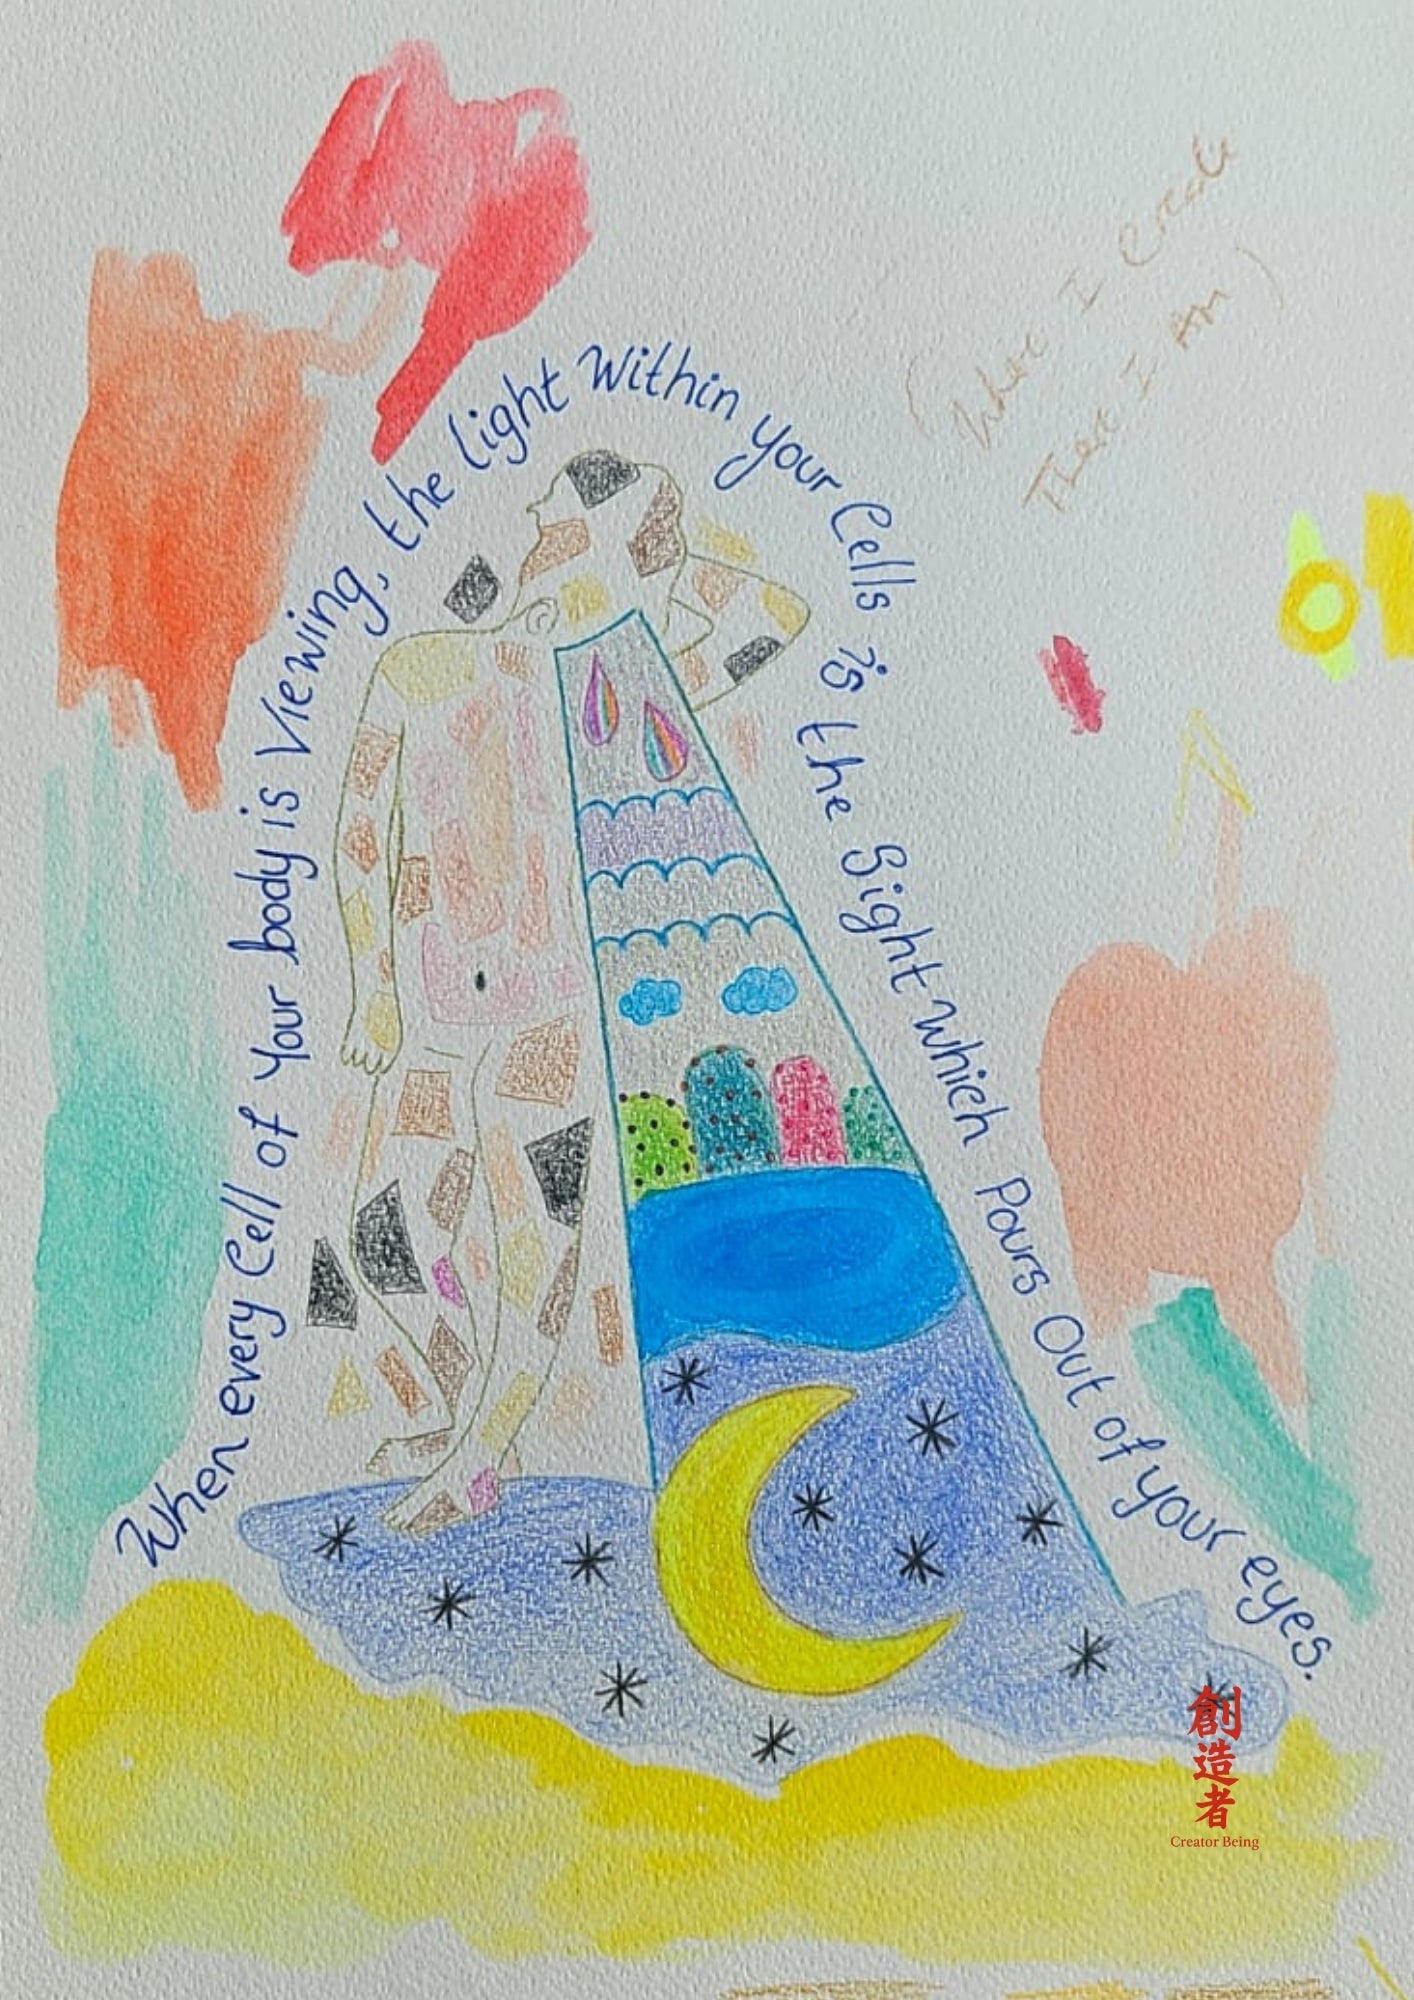 When every Cell of Your body is Viewing, the Light Within your Cells is the Sight which Pours Out of your eyes.
(Where I Create
There I Am)
創造者
Creator Being